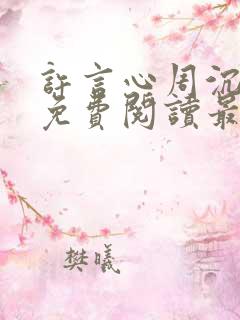 許言心周沉
免費閱讀最
樊曦